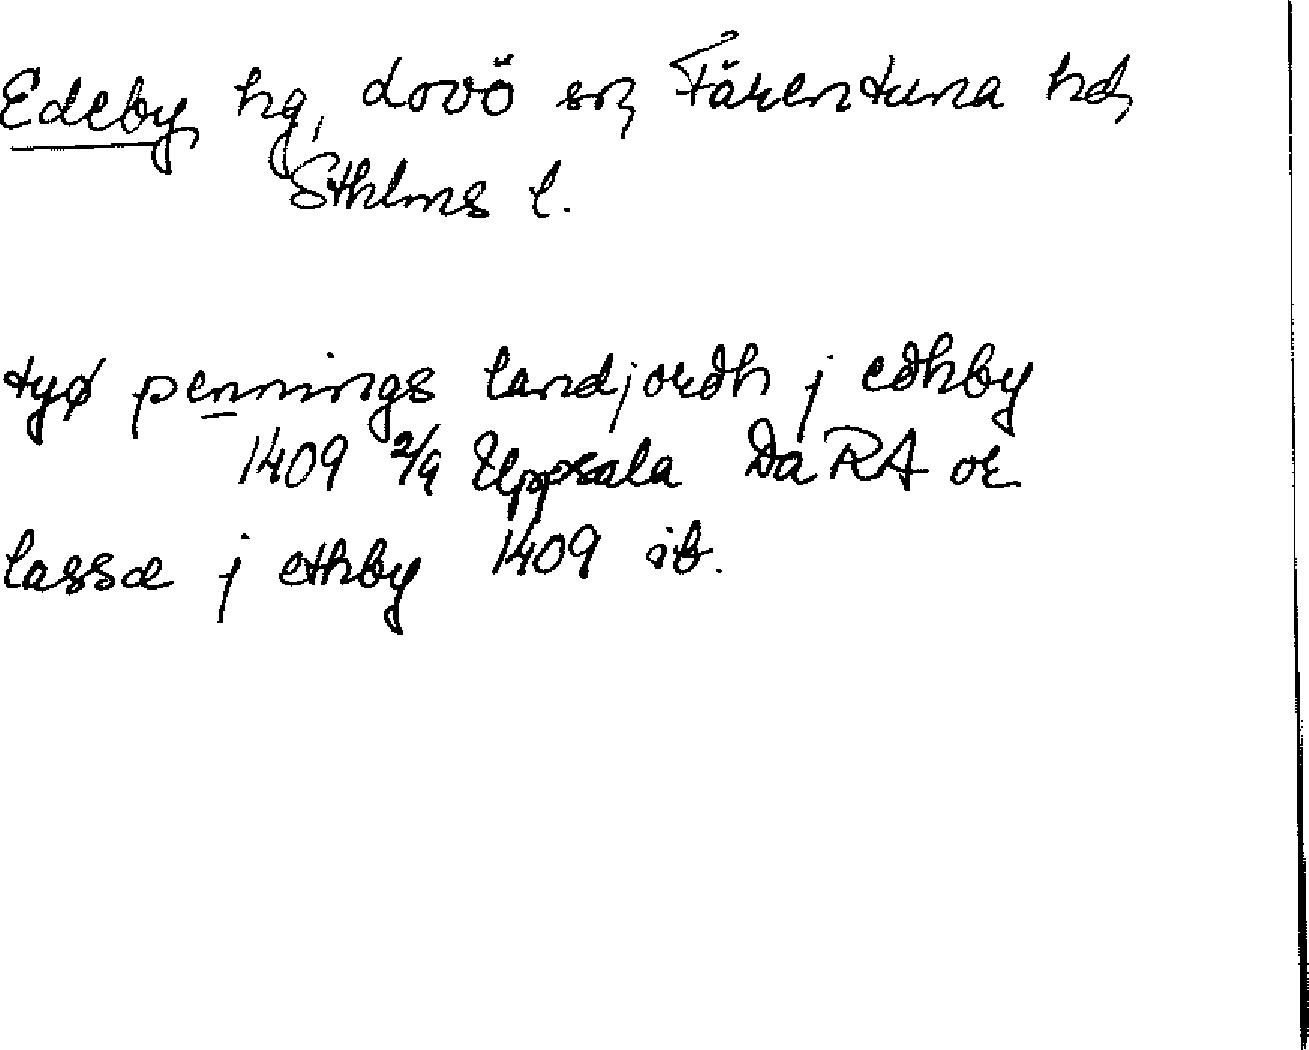 Edeby hg, Lovö sn, Färentuna hd,
Sthlms l.
tyø pennings landjordh j edhby
1409 2/9 Uppsala DaRA or
lassæ j ethby 1409 ib.